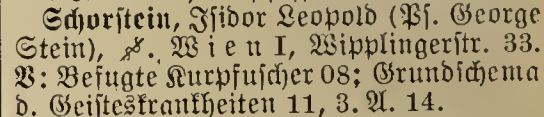 Schorstein, Isidor Leopold (Ps. George
Stein), . Wien I, Wipplingerstr. 33.
V: Befugte Kurpfuscher 08; Grundschema
d. Geisteskrankheiten 11, 3. A. 14.